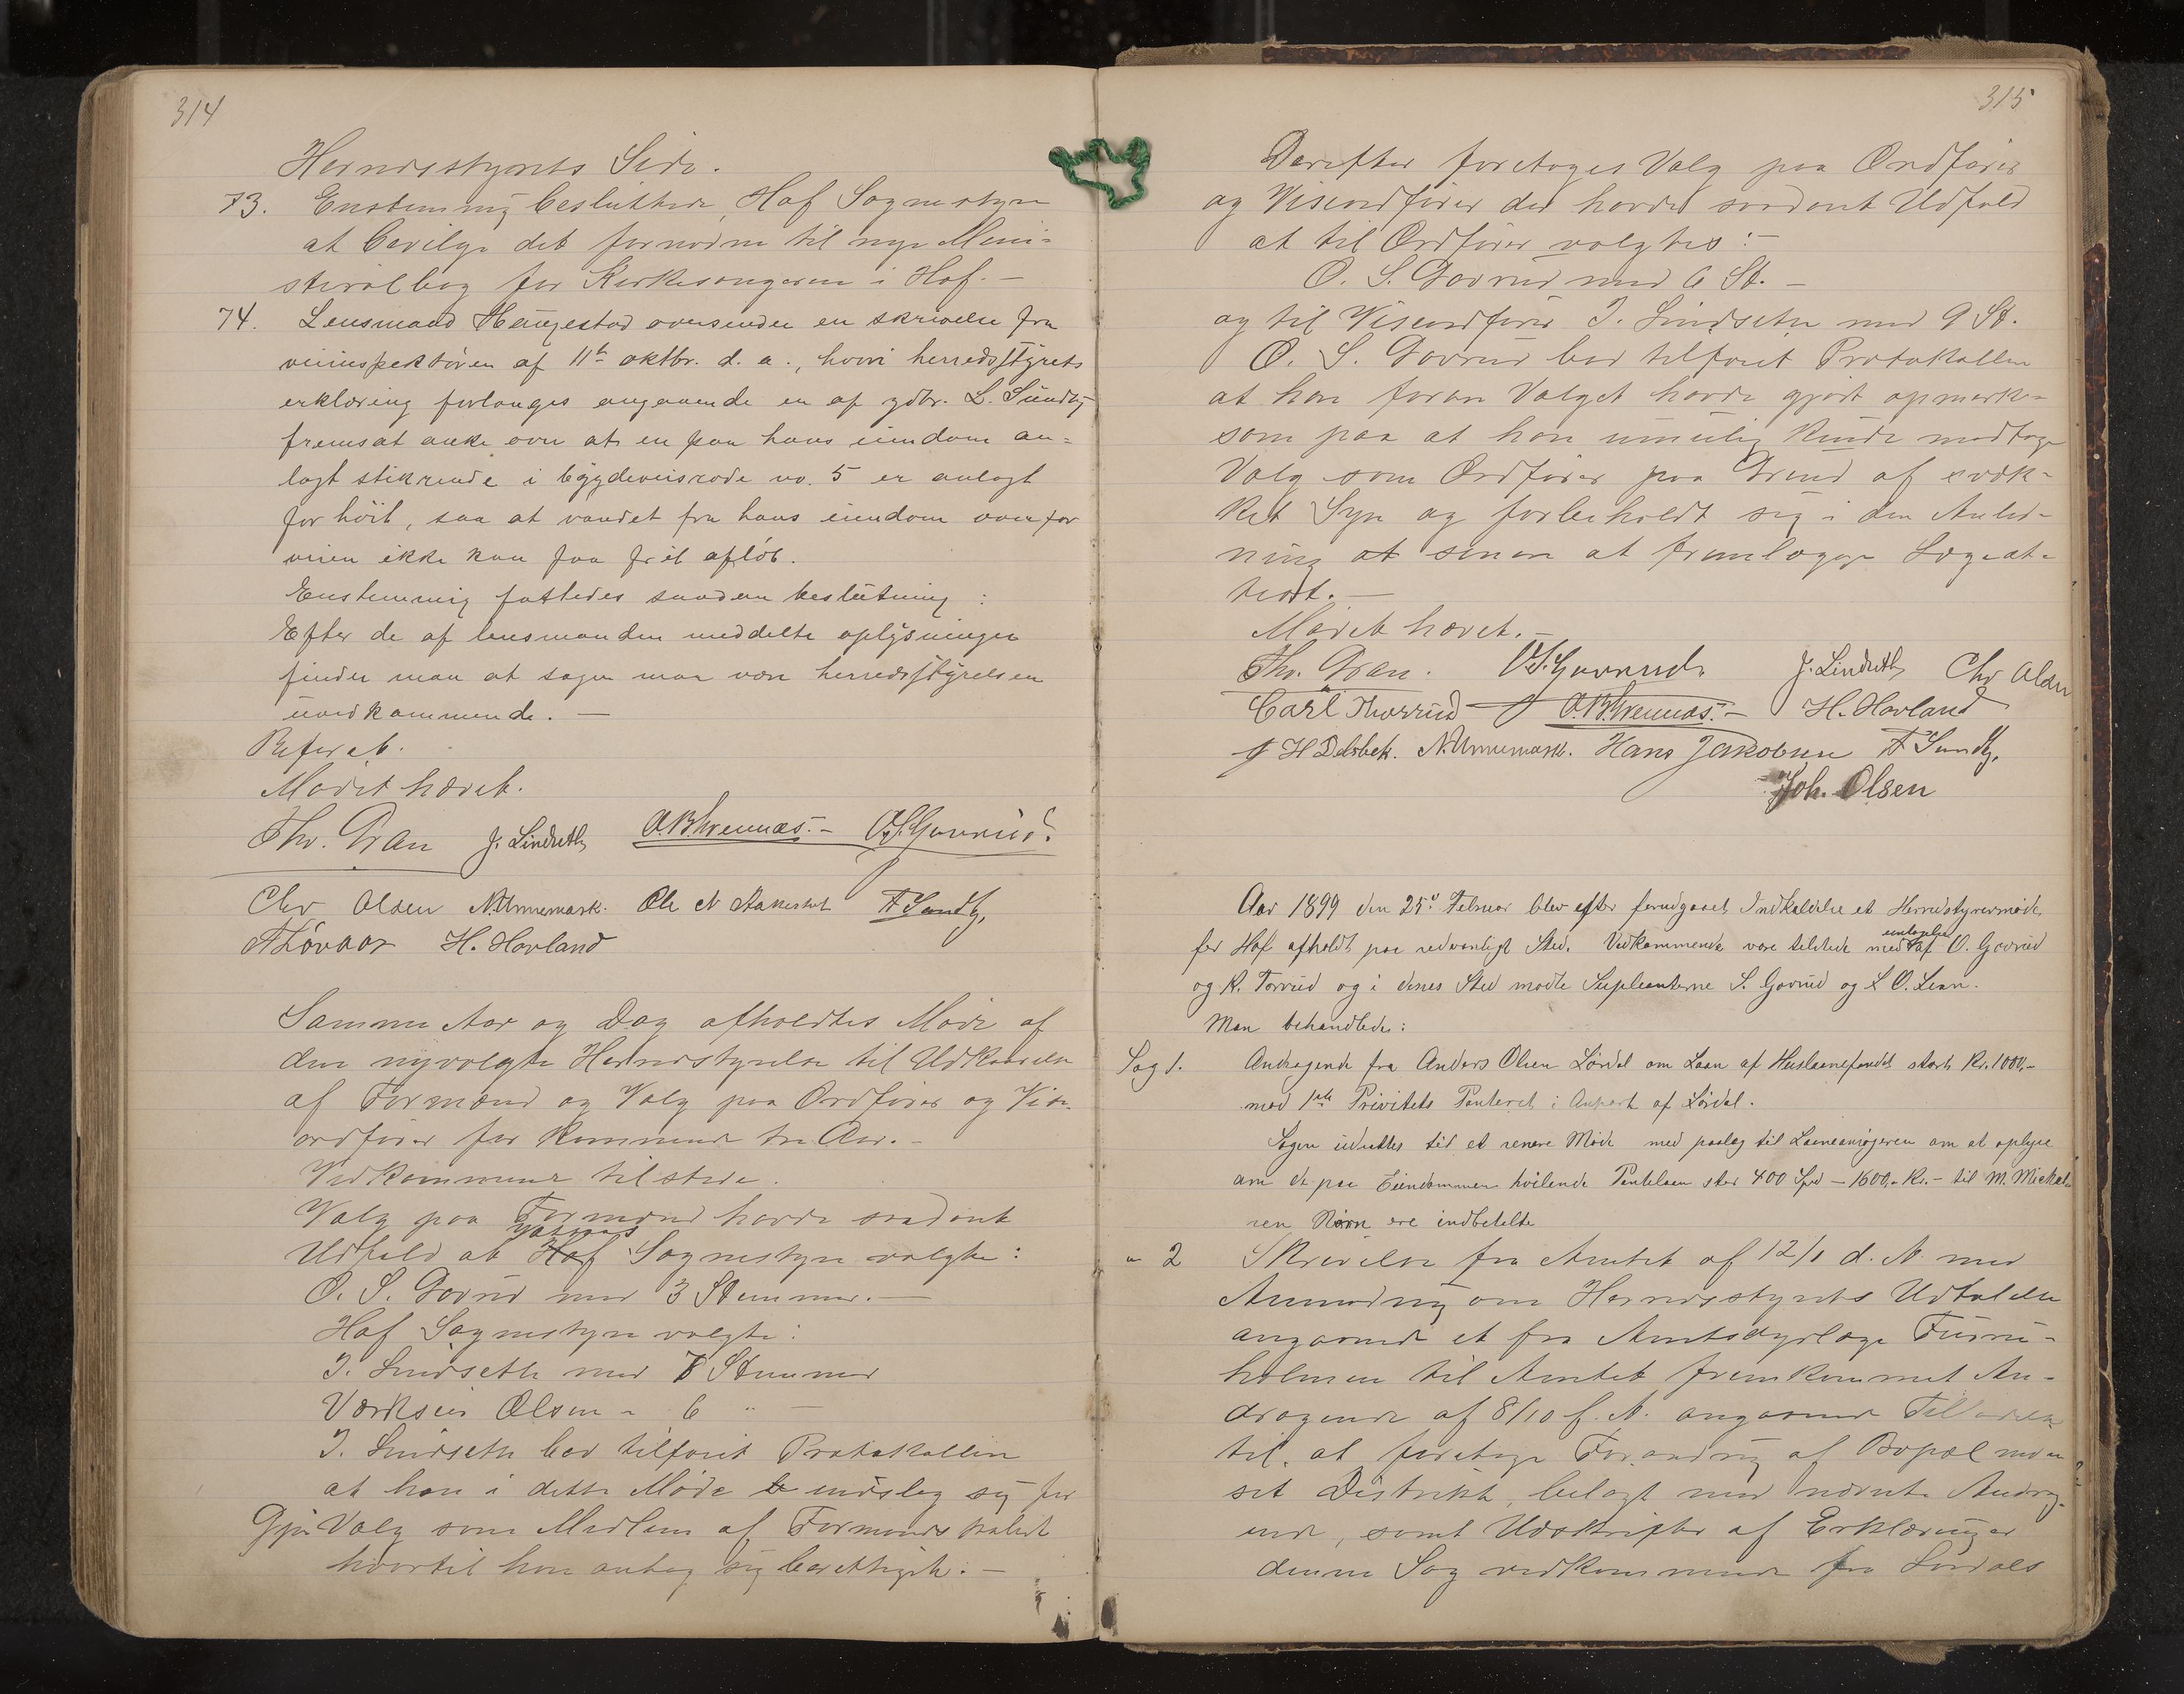 314
Herredsstyrets Side.
73. Enstemmig besluttede Hof Sognestyre
at bevilge det fornødne til nye Mini-
sterialbog for Kirkesangeren i Hof. —
74. Lensmand Haugestad oversender en skrivelse fra
veiinspektøren af 11te oktbr. d. a., hvori herredsstyrets
erklæring forlanges angaaende en af gdbr. L. Sundby
fremsat anke over at en paa hans eiendom an-
lagt stikrende i bygdeveisrode no. 5 er anlagt
for høit, saa at vandet fra hans eiendom ovenfor
veien ikke kan faa frit afløb.
Enstemmig fattedes saadan beslutning:
Efter de af lensmanden meddelte oplysninger
finder man at sagen maa være herredsstyrelsen
uvedkommende. —
Referat.
Mødet hævet.
Thv. Gran J. Lindseth A.B. Grennæs. — O.S. Govrud.
Chr Olsen N. Unnemark. Ole N A. Sundby,
A Løvaas H. Hovland
Samme Aar og Dag afholdtes Møde af
den nyvalgte Herredsstyrelse til Udkaarelse
af Formænd og Valg paa Ordfører og Vise-
ordfører for kommende tre Aar. —
Vedkommende tilstede.
Valg paa Formænd havde saadant
Udfald at Hof Sognestyre valgte:
O. S. Govrud med 3 Stemmer. —
Hof Sognestyre valgte:
J. Lindseth med 7 Stemmer
Værkseier Olsen - 6 " —
J. Lindseth bad tilført Protokollen
at han i dette Møde undslog sig for
Gjen Valg som Medlem af Formandskabet
hvortil han antog sig berettiget. —
315
Derefter foretoges Valg paa Ordfører
og Viseordfører der havde saadant Udfald
at til Ordfører valgtes: —
O. S. Govrud med 6 St. —
og til Viseordfører J. Lindseth med 9 St.
O. S. Govrud bad tilført Protokollen
at han foran Valget havde gjort opmærk-
som paa at han umulig kunde modtage
Valg som Ordfører paa Grund af svæk-
ket Syn og forbeholdt sig i den Anled-
ning at senere at fremlægge Lægeat-
test. —
Mødet hævet. —
Thv. Gran. O.S. Govrud. J. Lindseth Chr Olsen
Carl Thorrud A.B. Grennæs. — H. Hovland
H Delsbek. N. Unnemark. Hans Jakobsen A Sundby,
Joh. Olsen
Aar 1899 den 25de Februar blev efter forudgaaet Indkaldelse et Herredsstyremøde
for Hof afholdt paa sedvanligt Sted. Vedkommende vare tilstede med undtagelse af O. Govrud
og K. Torrud og i deres Sted mødte Supleanterne S. Govrud og L O. Lian.
Man behandlede:
Sag 1. Andragende fra Anders Olsen Lørdal om Laan af Huslaanefondet stort Kr. 1000,-
mod 1ste Privitets Panteret i Anpart af Lørdal.
Sagen udsattes til et senere Møde med paalæg til Laaneansøgeren om at oplyse
om de paa Eiendommen hvilende Pantelaan stor 400 Spd — 1600,- Kr. — til M. Mickel-
sen Narvn ere indbetalte
" 2 Skrivelse fra Amtet af 12/1 d. A. med
Anmodning om Herredsstyrets Udtalelse
angaaende et fra Amtsdyrlæge Furu-
holmen til Amtet fremkommet An-
dragende af 8/10 f. A. angaaende Tilladelse
til, at foretage Forandring af Bopæl inden
sit Distrikt, bilagt med nævnte Andrag-
ende, samt Udskrifter af Erklæringer
denne Sag vedkommende fra Sandes